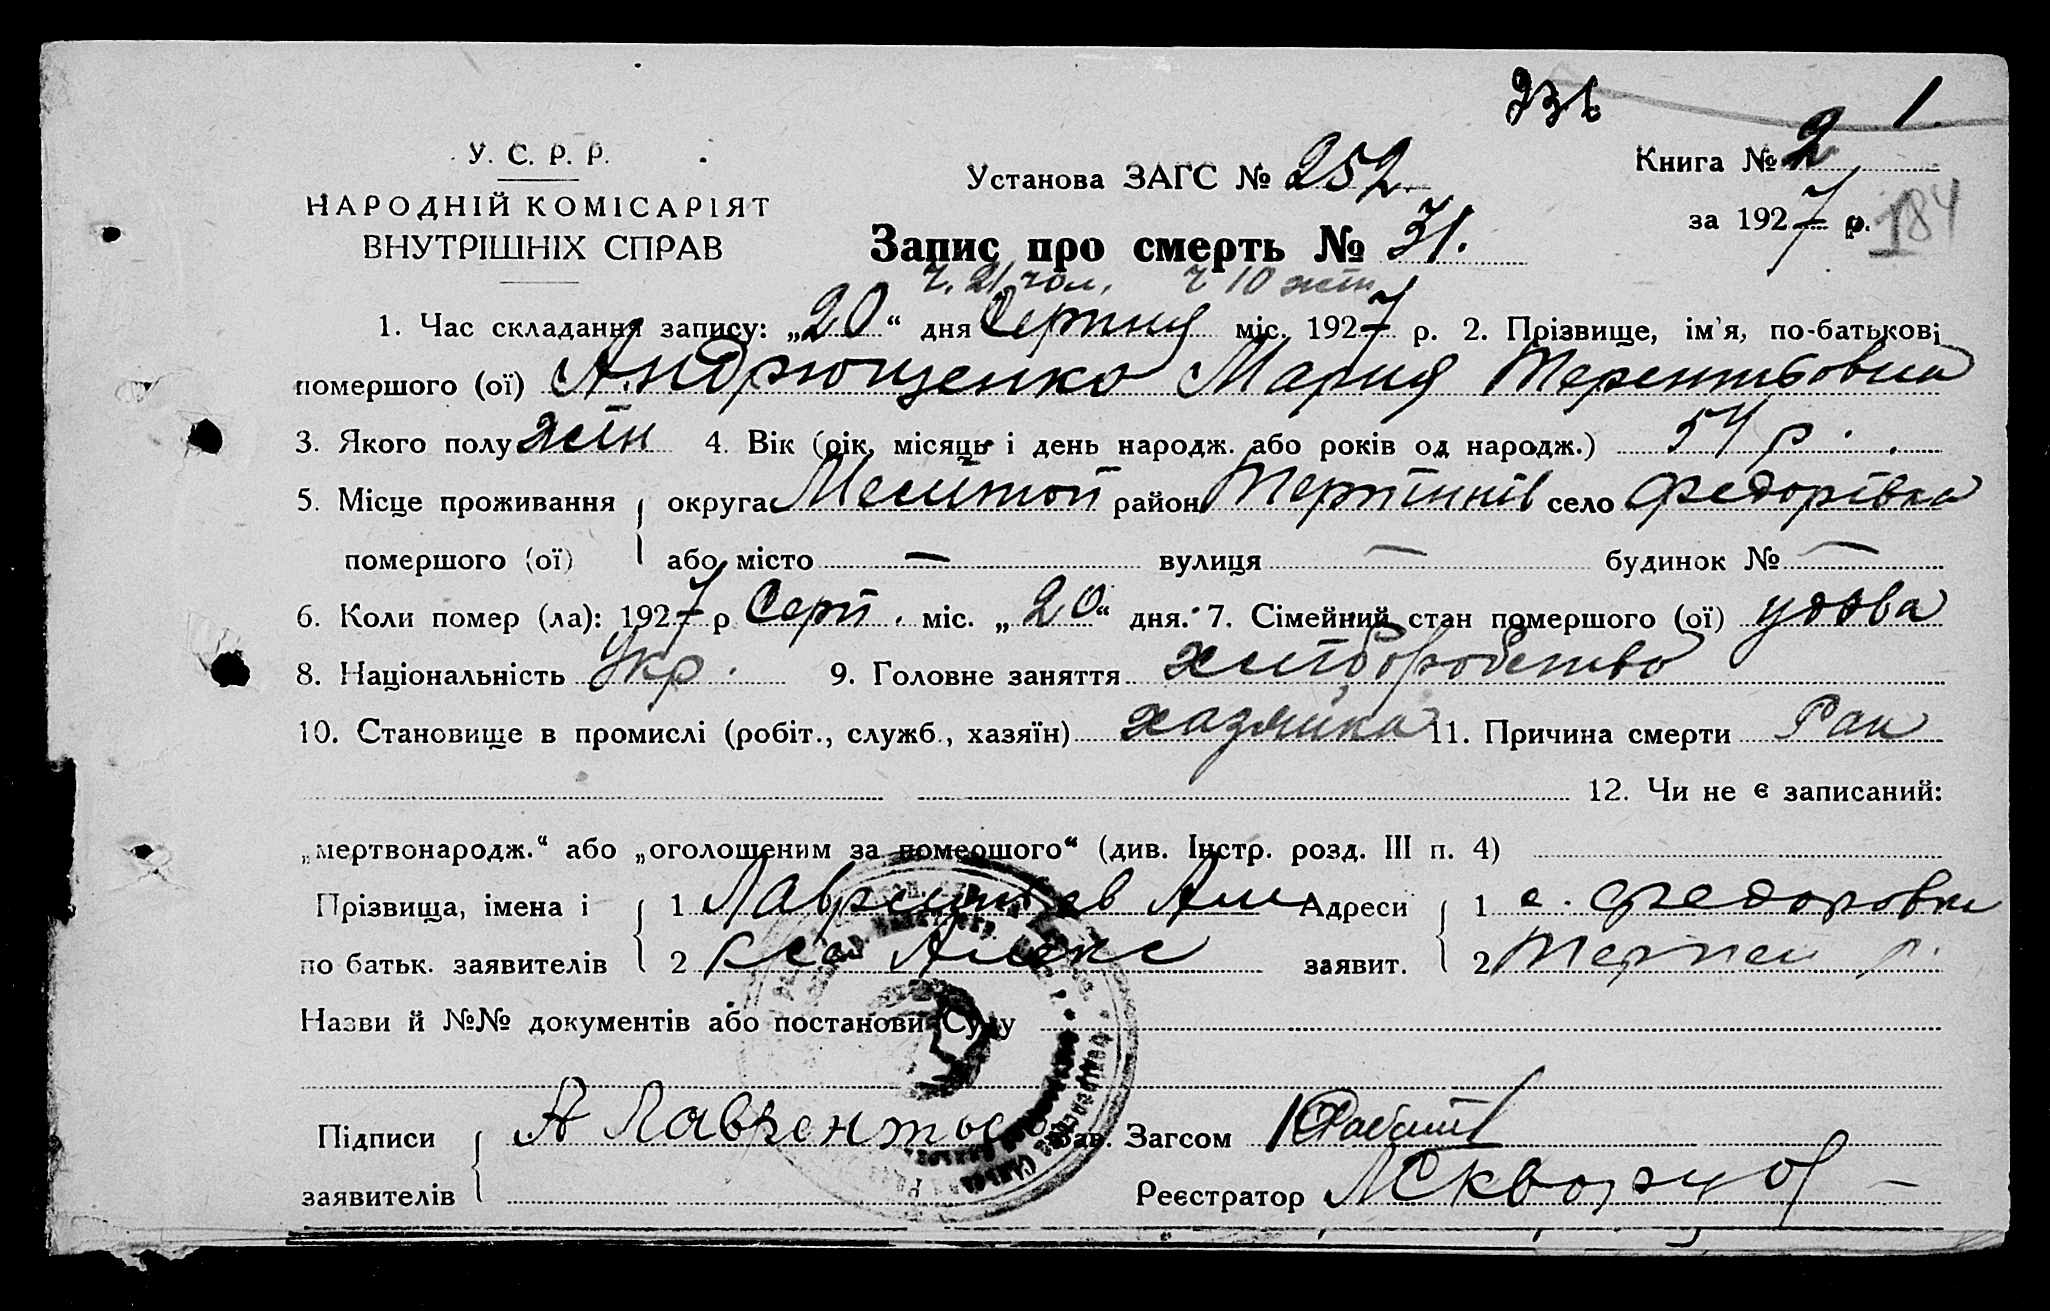 1.
У. С. Р. Р.
НАРОДНІЙ КОМІСАРІЯТ
ВНУТРІШНІХ СПРАВ
Установа ЗАГС № 252
Книга № 2
за 1927 р. 184
Запис про смерть № 31.
ч. 21 чол, ч 10 жін
1. Час складання запису: „20“ дня Серпня міс. 1927 р. 2. Прізвище, ім'я, по-батькові
помершого (ої) Андрющенко Мария Терентьовна
3. Якого полу жін 4. Вік (рік, місяць і день народж. або років од народж.) 54 р.
5. Місце проживання округа Мелітоп район Терпіннів село Федорівка
помершого (ої) або місто — вулиця — будинок № —
6. Коли помер (ла): 1927 р Серп. міс. „20“ дня. 7. Сімейний стан помершого (ої) удова
8. Національність Укр. 9. Головне заняття хліборобство
10. Становище в промислі (робіт., служб., хазяїн) хазяйка 11. Причина смерти Рак
12. Чи не є записаний:
„мертвонародж.“ або „оголошеним за помершого“ (див. Інстр. розд. III п. 4)
Прізвища, імена і 1 Лаврентьев Але Адреси 1 с. Федоровка
по батьк. заявителів 2 заявит. 2 Терпен р.
Назви й №№ документів або постанови Суду
Підписи А Лаврентьев Зав. Загсом
заявителів Реєстратор Скворцов